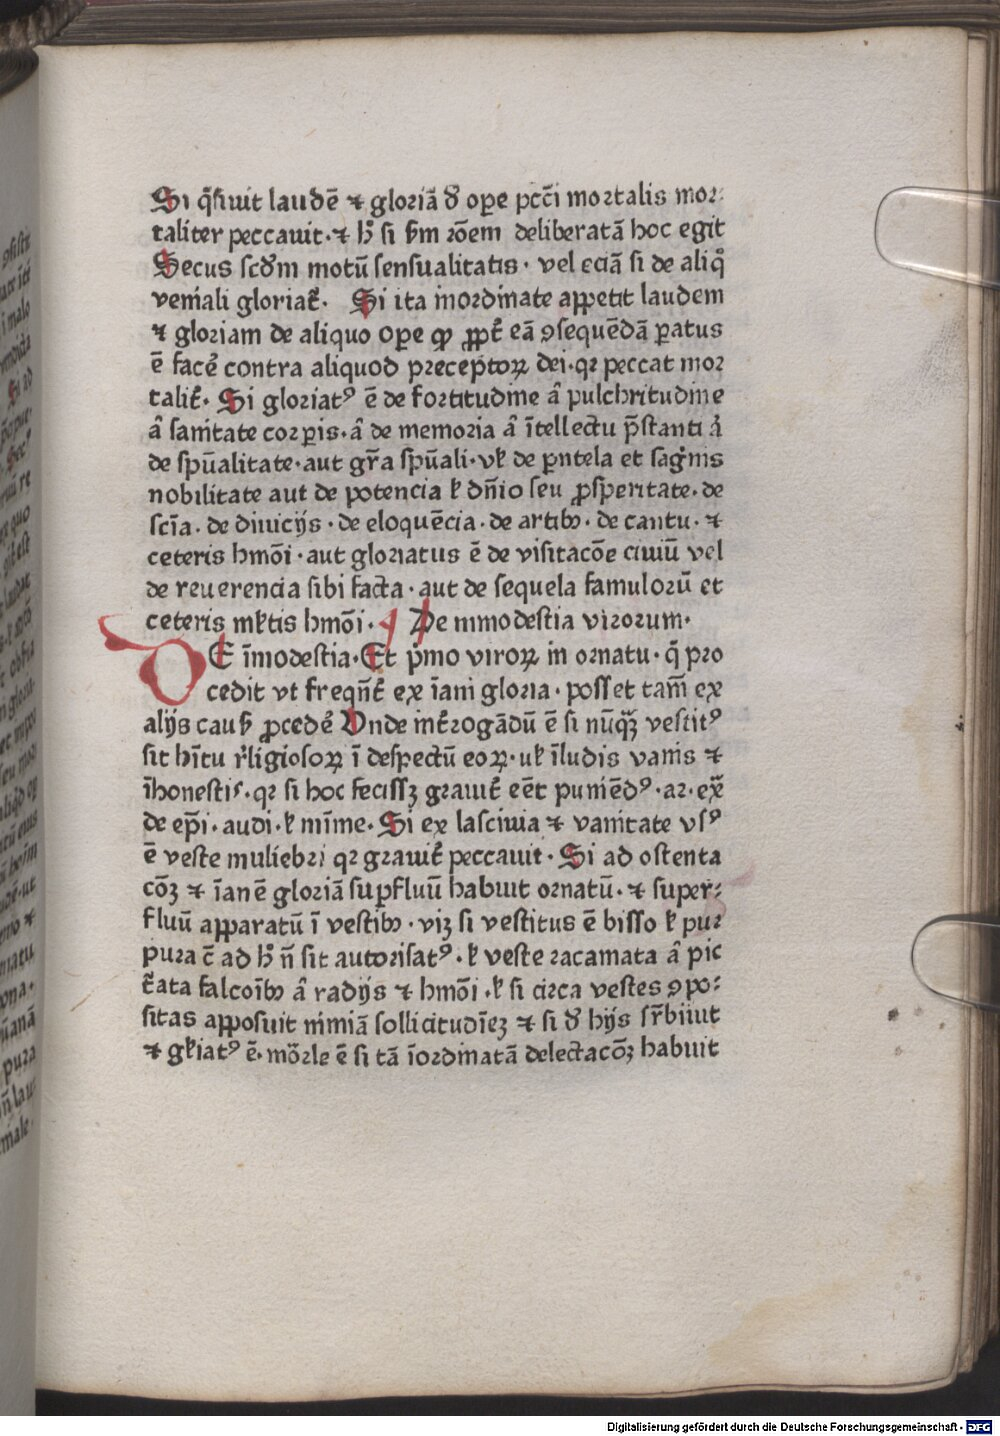 Si q̄siuit laudē ⁊ gloriā ꝺ ope pctī mortalis mor⸗
taliter peccauit·⁊ hͦ si ẜm rōem deliberatā hoc egit
Secus scꝺm motū sensualitatis· vel eciā si de aliqͦ
veniali gloriat̄· Si ita inordinate appetit laudem
⁊ gloriam de aliquo ope ꝙ ꝓpt̄ eā ꝯsequēdā paratus
ē facē contra aliquod preceptoꝝ dei·qꝛ peccat mor
talit̄· Si gloriatꝰ ē de fortitudine â pulchritudine
â sanitate corꝑis·â de memoria â ītellectu p̄stanti â
de spūalitate·aut gr̄a spūali·vł de parentela et sag̾nis
nobilitate aut de potencia ł dn̄io seu ꝓsperitate·de
scīa·de diuicijs·de eloquēcia·de artibꝫ·de cantu·⁊
ceteris hmōi·aut gloriatus ē de visitacōe ciuiū vel
de reuerencia sibi facta·aut de sequela famulorū et
ceteris młtis hmōi· De inmodestia virorum·
DE īmodestia·Et pͥmo viroꝝ in ornatu·q̄ pro
cedit vt freqn̄t̄ ex īani gloria·posset tam̄ ex
alijs caus̄ ꝓcedē Unde int̄rogādū ē si nūqͣꝫ vestitꝰ
sit hītu rͤligiosoꝝ ī despectū eoꝝ·uł īludis vanis ⁊
īhonestis·qꝛ si hoc fecissꝫ grauit̄ eēt puniēdꝰ·ar·ex̄
de epī·audi·ł mīme·Si ex lasciuia ⁊ vanitate vsꝰ
ē veste muliebri qꝛ grauit̄ peccauit·Si ad ostenta
cōꝫ ⁊ īanē gloriā supfluū habuit ornatū·⁊ super⸗
fluū apparatū ī vestibꝫ·viꝫ si vestitus ē bisso ł pur
pura c̄ ad hͦ n̄ sit autorisatꝰ·ł veste racamata â pic
t̄ata falcoībꝫ â radijs ⁊ hmōi·ł si circa vestes ꝯpo⸗
sitas apposuit nimiā sollicitudīeꝫ ⁊ si ꝺ hijs sr̄biuit
⁊ głiatꝰ ē·mōrle ē si tā īordinatā delectacōꝫ habuit
Digitalisierung gefördert durch die Deutsche Forschungsgemeinschaft - DFG